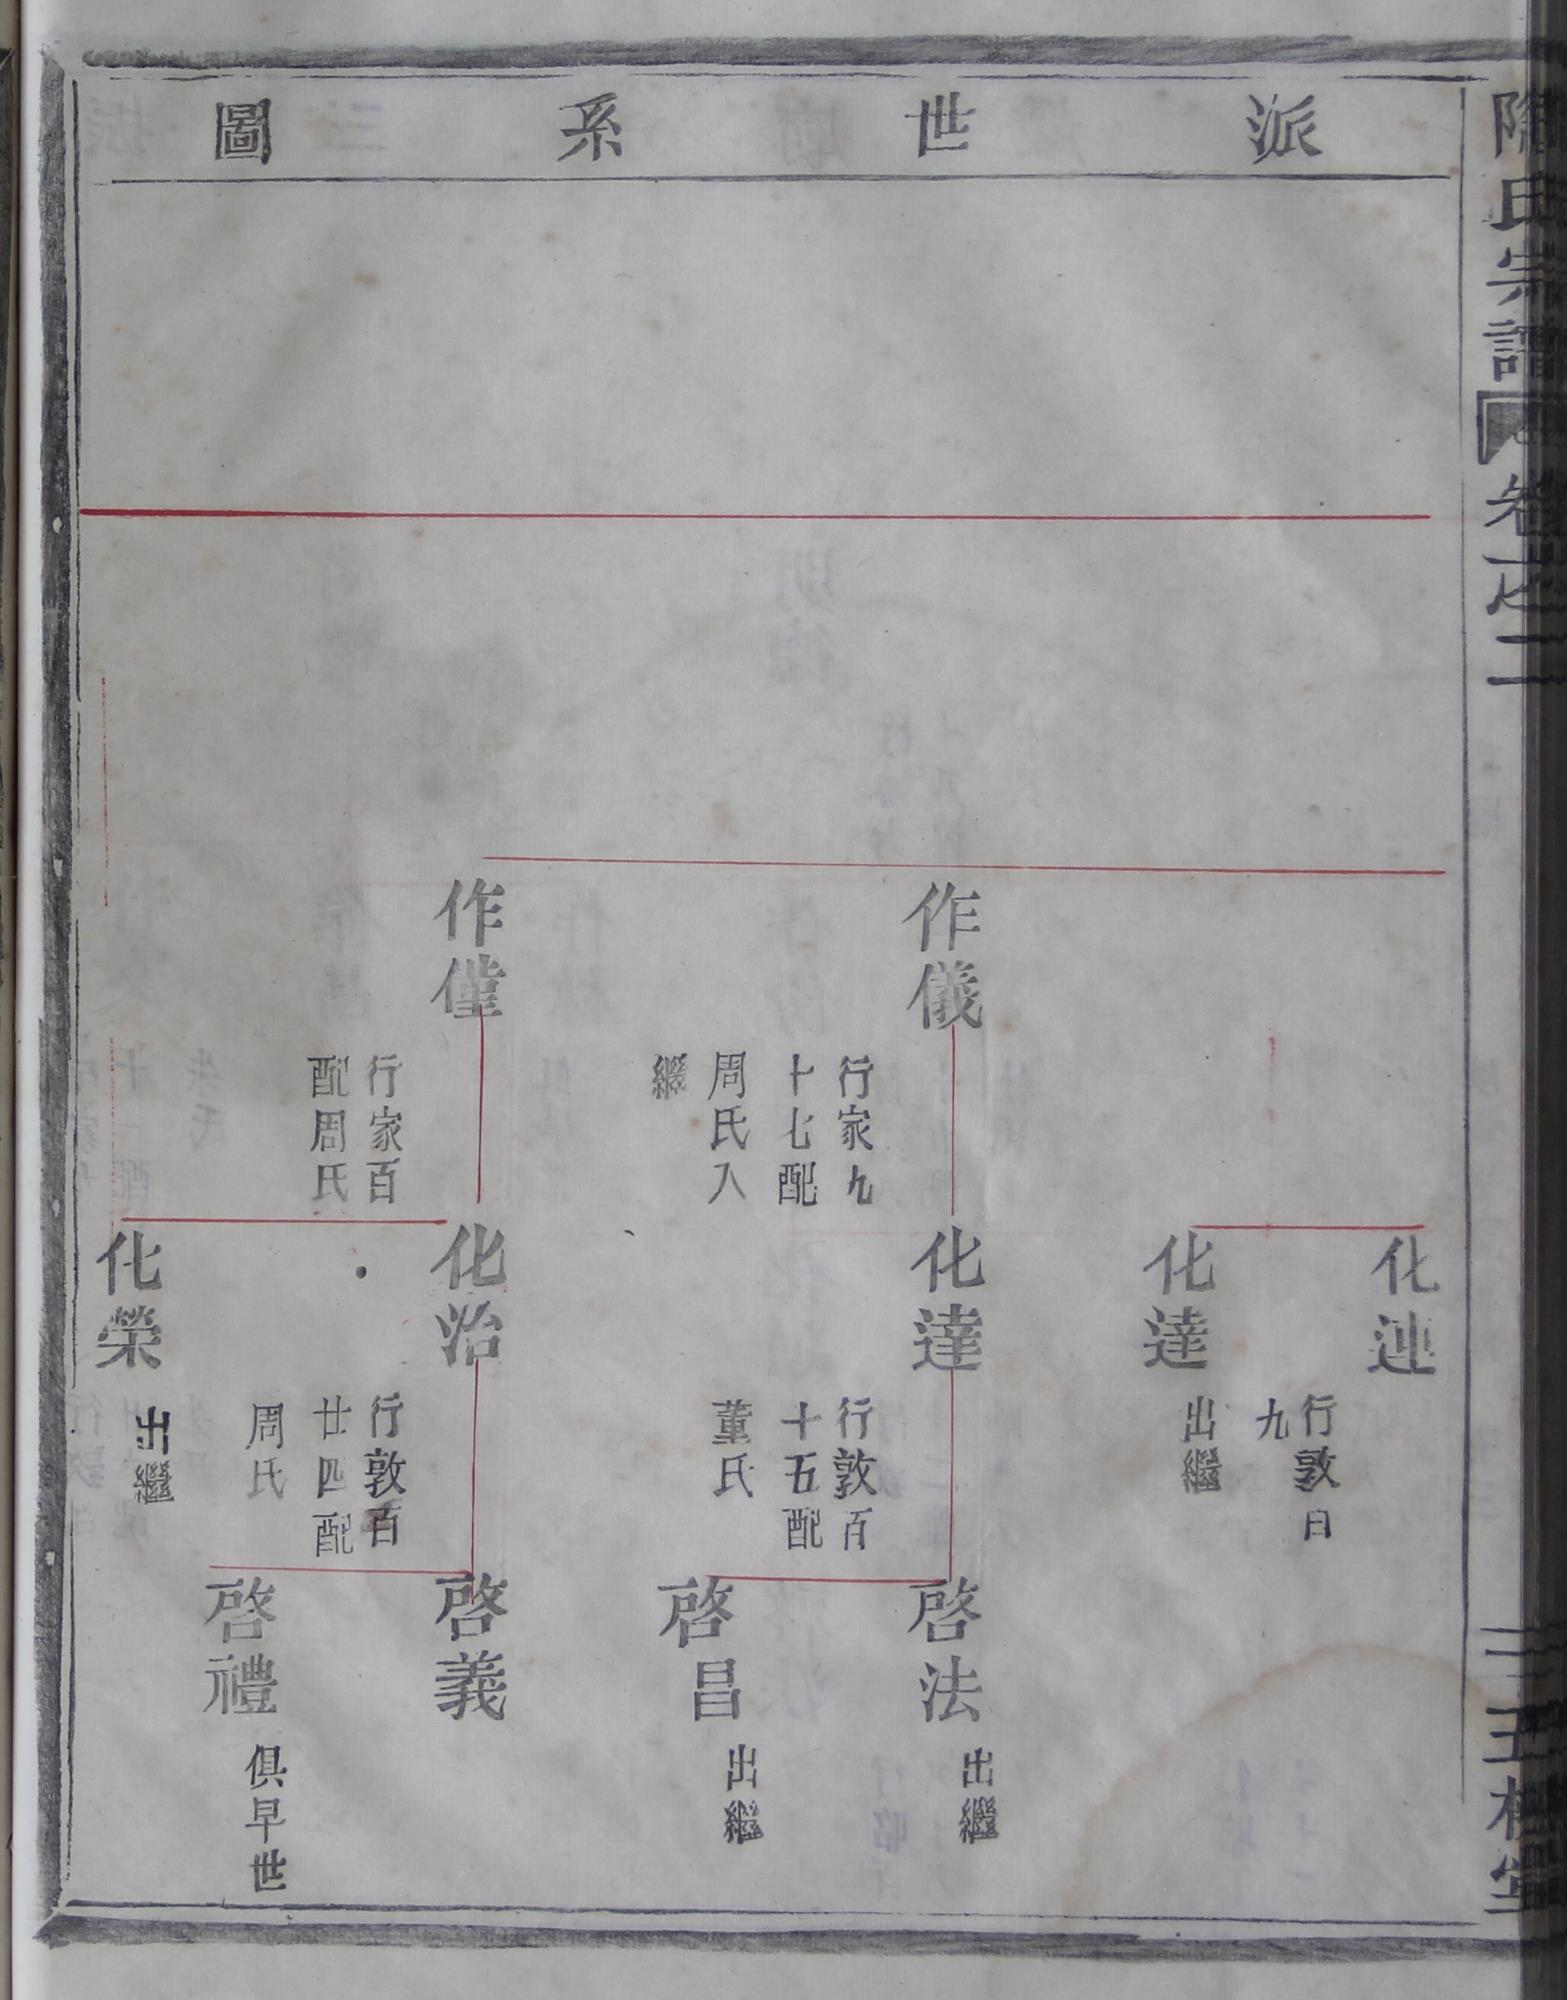 陶氏宗譜
卷之二
五柳堂
派世系圖
作儀
行家九
十七配
周氏入
繼
作僅
行家百
配周氏
化連
行敦百
九
化達
出繼
化達
行敦百
十五配
董氏
化治
行敦百
廿四配
周氏
化榮
出繼
啓法
出繼
啓昌
出繼
啓義
啓禮
俱早世